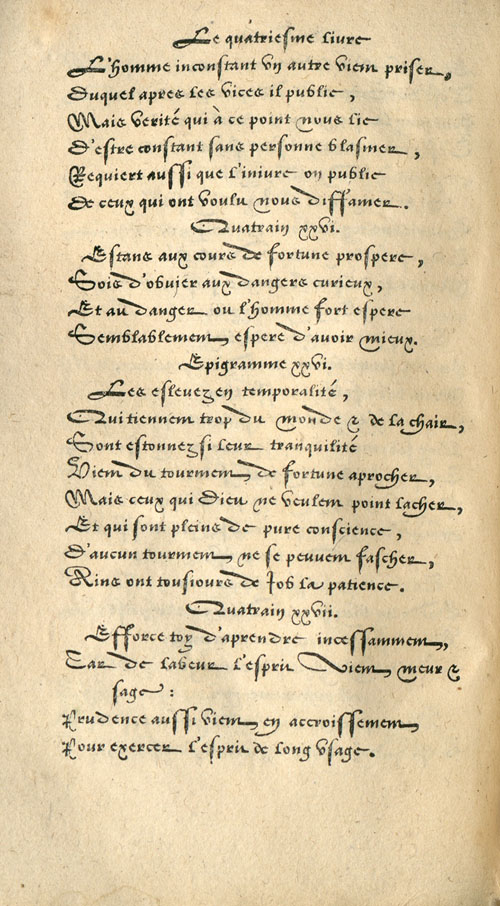 Le quatriesme livre
L'homme inconstant vn autre vient priser,
Duquel apres les vices il publie,
Mais verité qui à ce point nous lie
D'estre constant sans personne blasmer,
Requiert aussi que l'iniure on publie
De ceux qui ont voulu nous diffamer.
Quatrain xxvi.
Estans aux cours de fortune prospere,
Sois d'obuier aux dangers curieux,
Et au danger ou l'homme fort espere
Semblablement espere d'avoir mieux.
Epigramme xxvi.
Les eslevez en temporalité,
Qui tiennent trop du monde & de la chair,
Sont estonnez si leur tranquilité
Vient du tourment de fortune aprocher,
Mais ceux qui Dieu ne veulent point lacher,
Et qui sont pleins de pure conscience,
D'aucun tourment ne se peuvent fascher,
Ains ont tousiours de Iob la patience.
Quatrain xxvii.
Efforce toy d'aprendre incessamment,
Car de labeur l'esprit vient meur &
sage :
Prudence aussi vient en accroissement
Pour exercer l'esprit de long vsage.